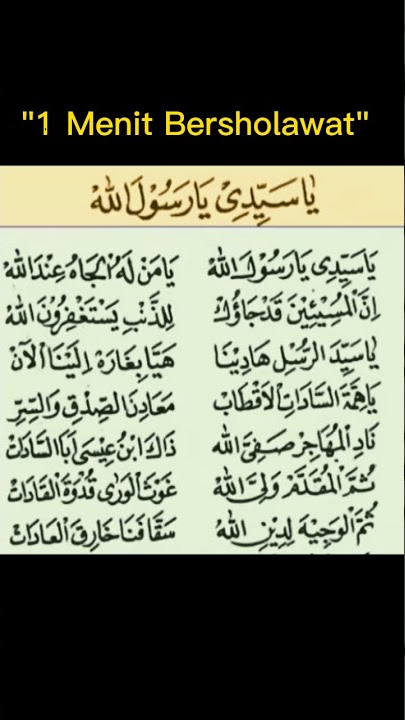 "1 Menit Bersholawat"
يَا سَيِّدِيْ يَا رَسُوْلَ اللهْ
يَا سَيِّدِى يَا رَسُوْلَ اللهْ يَا مَنْ لَهُ الْجَاهُ عِنْدَ اللهْ
اِنَّ الْمُسِيْئِيْنَ قَدْ جَاؤُكْ لِلذَّنْبِ يَسْتَغْفِرُوْنَ اللهْ
يَا سَيِّدَ الرُّسُلِ هَادِيْنَا هَيَّا بِغَارَةْ اِلَيْنَا الْآنْ
يَا هِمَّةَ السَّادَاتِ الْاَقْطَابْ مَعَادِنَ الصِّدْقِ وَالسِّرِّ
نَادِ الْمُهَاجِرْ صَفِيَّ الله ذَاكَ ابْنُ عِيْسَى اَبَا السَّادَاتْ
ثُمَّ الْمُقَدَّمْ وَلِيَّ اللهْ غَوْثَ الْوَرٰى قُدْوَةَ الْقَادَاتْ
ثُمَّ الْوَجِيْهَ لِدِيْنِ اللهْ سَقَّافَنَا خَارِقَ الْعَادَاتْ